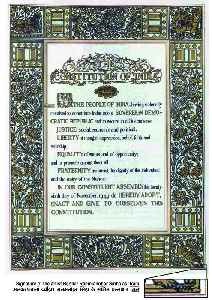 THE
CONSTITUTION OF INDIA
WE, THE PEOPLE OF INDIA, having solemnly
resolved to constitute India into a SOVEREIGN DEMO-
CRATIC REPUBLIC and to secure to all its citizens:
JUSTICE, social, economic and political;
LIBERTY of thought, expression, belief, faith and
worship;
EQUALITY of status and of opportunity;
and to promote among them all
FRATERNITY assuring the dignity of the individual
and the unity of the Nation;
IN OUR CONSTITUENT ASSEMBLY this twenty-
sixth day of November, 1949, do HEREBY ADOPT,
ENACT AND GIVE TO OURSELVES THIS
CONSTITUTION.
Signature of the artist